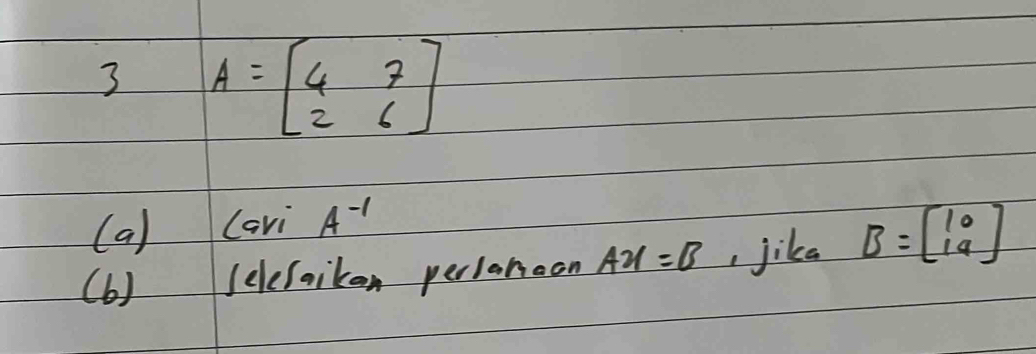 3 A = [4 7
2 6]
(a) Cari A⁻¹
(b) Selesaikan persamaan Ax = B , jika B = [10
14]